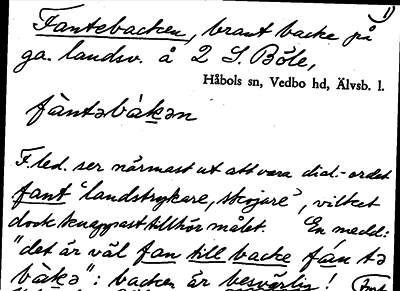 1)
Fantebacken, brant backe på
ga. landsv. å 2 S. Böle,
Håbols sn, Vedbo hd, Älvsb. l.
fàntəbàkən
F.led. ser närmast ut att vara dial.-ordet
fant "landstrykare, skojare", vilket
dock knappast tillhör målet. En medd.:
"det är väl fan till backe fan tə
bàkə": backen är besvärlig!